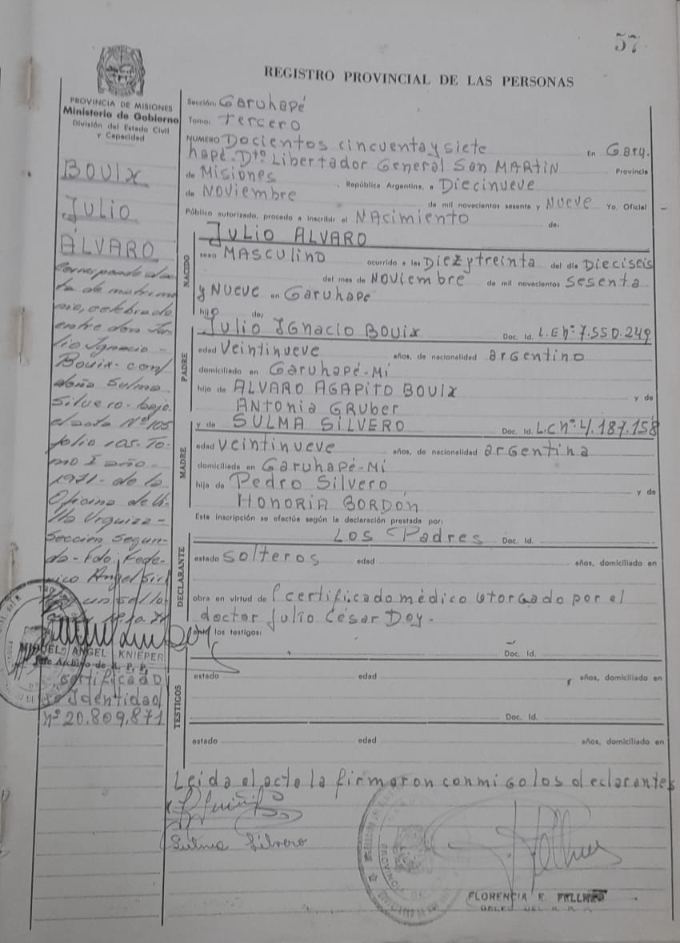 57
REGISTRO PROVINCIAL DE LAS PERSONAS
PROVINCIA DE MISIONES
Ministerio de Gobierno
División del Estado Civil
y Capacidad
BOUIX
JULIO
ÁLVARO
Corresponde al ac
ta de matrimo
nio, celebrado
entre don Ju
lio Ignacio
Bouix con
doña Sulma
Silvero - bajo
el acta Nº 105
folio 105 - To
mo I año
1971 - de la
Oficina de Vi
lla Urquiza -
Sección Segun
da - Fdo. Fede
rico Angel
un sello
MIGUEL ANGEL KNIEPER
Certificado
de Identidad
nº 20.809.871
Sección: Garuhapé
Tomo: Tercero
NUMERO Docientos cincuenta y siete en Garu
hapé. Dto. Libertador General San MARTIN Provincia
de Misiones, República Argentina, a Diecinueve
de Noviembre de mil novecientos sesenta y Nueve Yo, Oficial
Público autorizado, procedo a inscribir el NAcimiento de:
Julio ALVARO
NACIDO
sexo MASCUliNO ocurrido a las Diez y treinta del día Dieciseis
del mes de Noviembre de mil novecientos Sesenta
y Nueve en Garuhapé
hijo de:
PADRE
Julio IGnacio BOUix Doc. Id. L.E nº 7.550.249
edad Veintinueve años, de nacionalidad argentino
domiciliado en Garuhapé-Mí
hijo de ALVARO AGAPITO BOUIX y de
ANTonia GRUber
MADRE
y de SULMA SILVERO Doc. Id. L.C nº 4.187.158
edad Veintinueve años, de nacionalidad argentina
domiciliada en Garuhapé-Mí
hija de Pedro Silvero y de
HONORIA BORDÓN
Esta inscripción se efectúa según la declaración prestada por:
DECLARANTE
LOS Padres Doc. Id.
estado Solteros edad años, domiciliado en
obra en virtud de certificado médico otorgado por el
doctor Julio César Doy.
los testigos:
TESTIGOS
Doc. Id.
estado edad años, domiciliado en
Doc. Id.
estado edad años, domiciliado en
Leida el acta la firmaron conmigo los declarantes
Sulma Silvero
FLORENCIA E. FELLNER